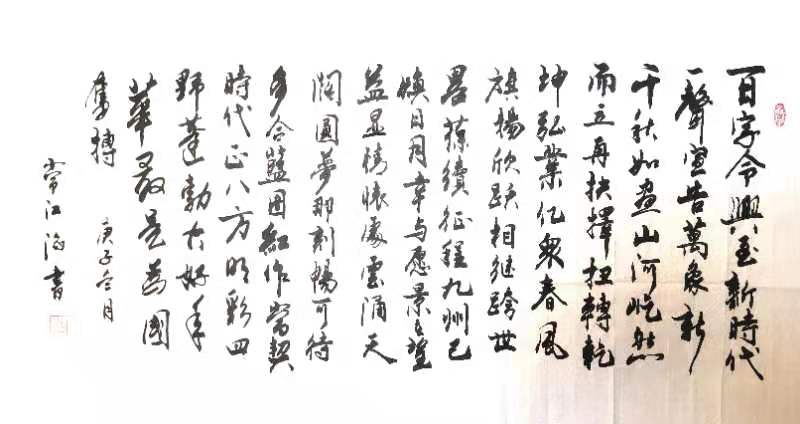 百字令興至新時代
一聲宣告萬象新
千秋如畫山河屹然
而立再抉擇扭轉乾
坤弘業億衆春風
旗揚欣躍相继跨世
畧獉續征程九州已
煥日月幸与愿景
益显情懷處雲涌天
濶圓夢那刻暢可待
多合藍图紅作當
時代正八方明彩四
野蓬勃大好年
華最是為國
奮搏
庚子冬月
常江海書